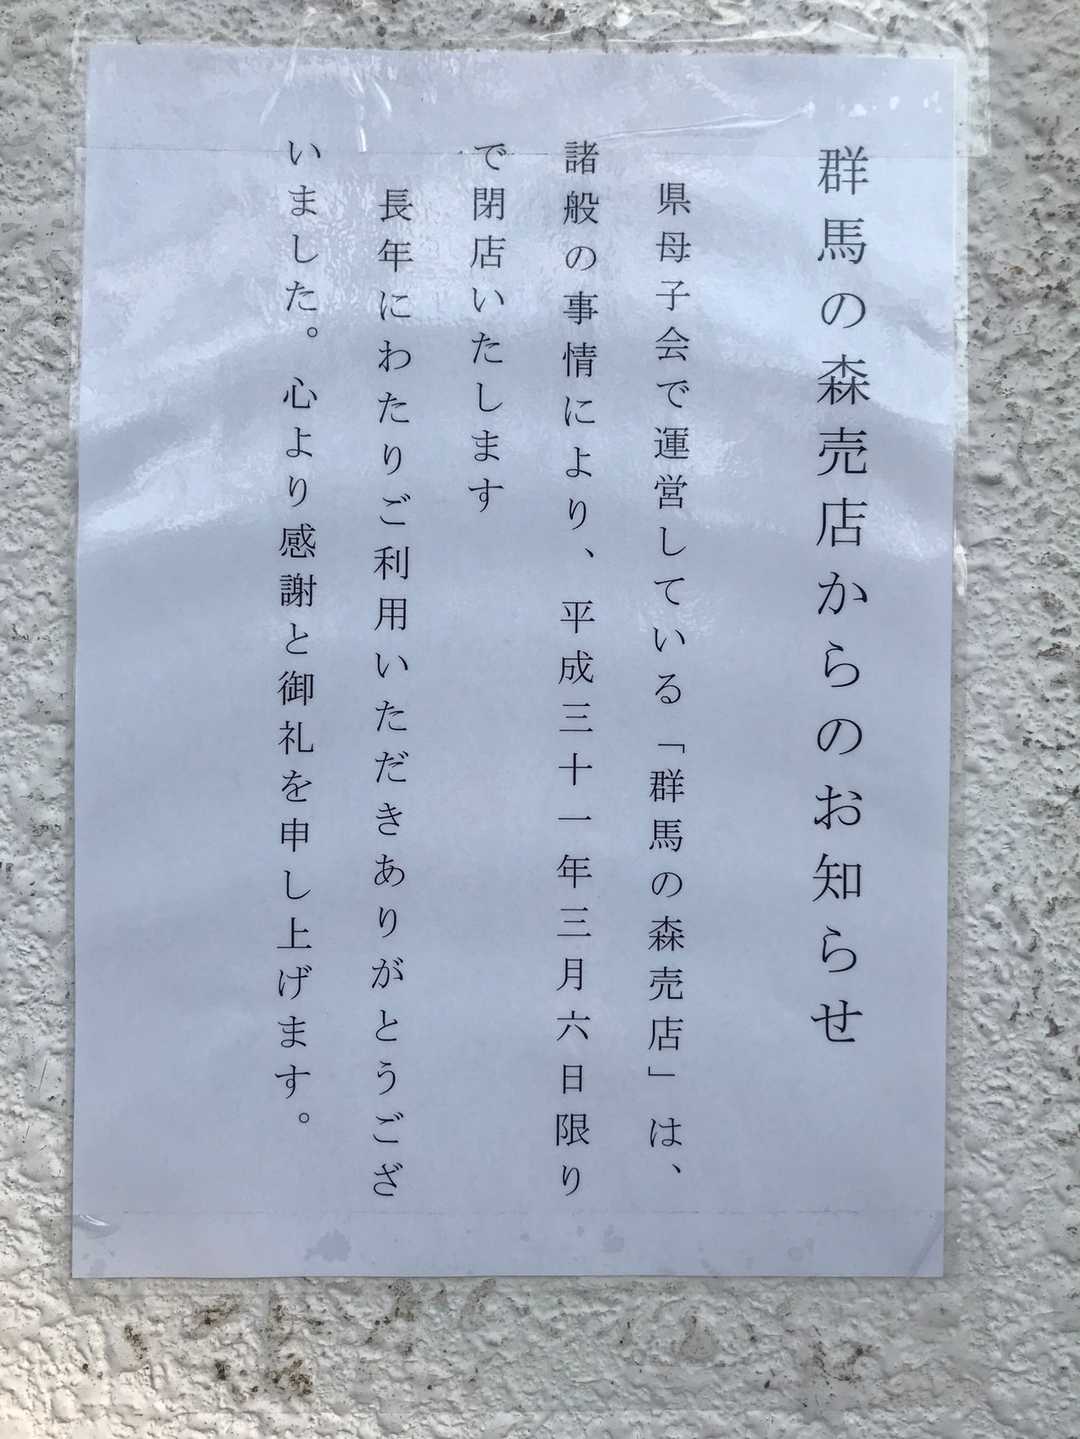 群馬の森売店からのお知らせ
県母子会で運営している「群馬の森売店」は、
諸般の事情により、平成三十一年三月六日限り
で閉店いたします
長年にわたりご利用いただきありがとうござ
いました。心より感謝と御礼を申し上げます。